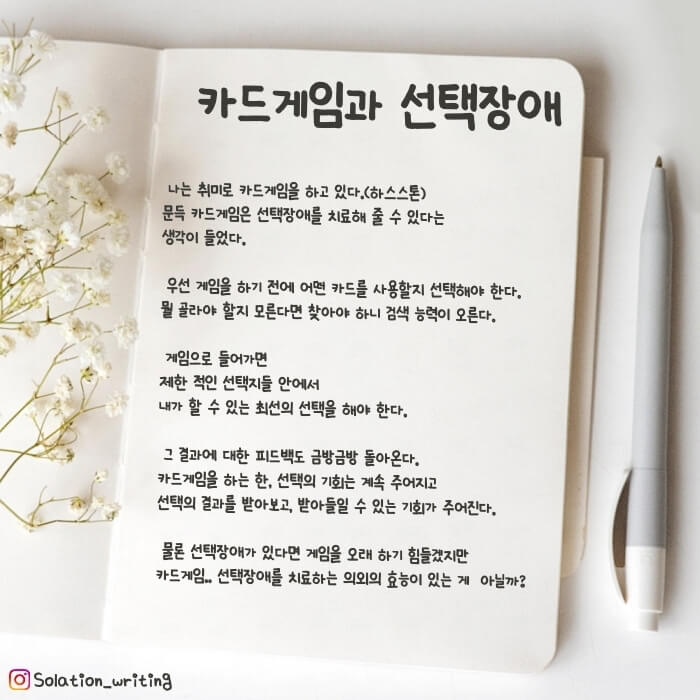 카드게임과 선택장애
나는 취미로 카드게임을 하고 있다.(하스스톤)
문득 카드게임은 선택장애를 치료해 줄 수 있다는
생각이 들었다.
우선 게임을 하기 전에 어떤 카드를 사용할지 선택해야 한다.
뭘 골라야 할지 모른다면 찾아야 하니 검색 능력이 오른다.
게임으로 들어가면
제한 적인 선택지들 안에서
내가 할 수 있는 최선의 선택을 해야 한다.
그 결과에 대한 피드백도 금방금방 돌아온다.
카드게임을 하는 한, 선택의 기회는 계속 주어지고
선택의 결과를 받아보고, 받아들일 수 있는 기회가 주어진다.
물론 선택장애가 있다면 게임을 오래 하기 힘들겠지만
카드게임.. 선택장애를 치료하는 의외의 효능이 있는 게 아닐까?
Solation_writing